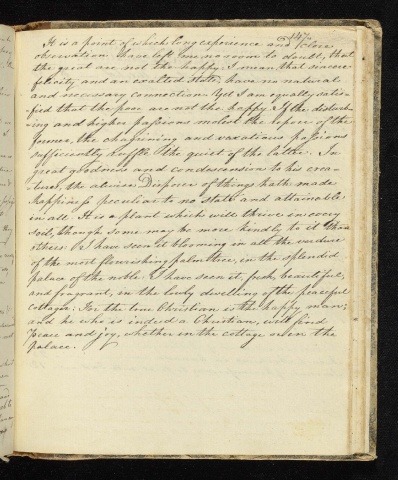 147
It is a point of which long experience and close
observation have left me no room to doubt, that
the great are not the happy; I mean that sincere
felicity and an exalted state, have no natural
and necessary connection. Yet I am equally satis-
fied that the poor are not the happy. If the disturb-
ing and higher passions molest the repose of the
former, the chagrining and vexatious passions
sufficiently ruffle the quiet of the latter. In
great goodness and condescension to his crea-
tures, the alwise Disposer of things hath made
happiness peculiar to no state and attainable
in all. It is a plant which will thrive in every
soil, though some may be more kindly to it than
others. I have seen it blooming in all the verdure
of the most flourishing palm tree, in the splendid
palace of the noble. I have seen it, fresh, beautiful,
and fragrant, in the lowly dwelling of the peaceful
cottager. For the true Christian is the happy man;
and he who is indeed a Christian, will find
peace and joy, whether in the cottage or in the
palace.